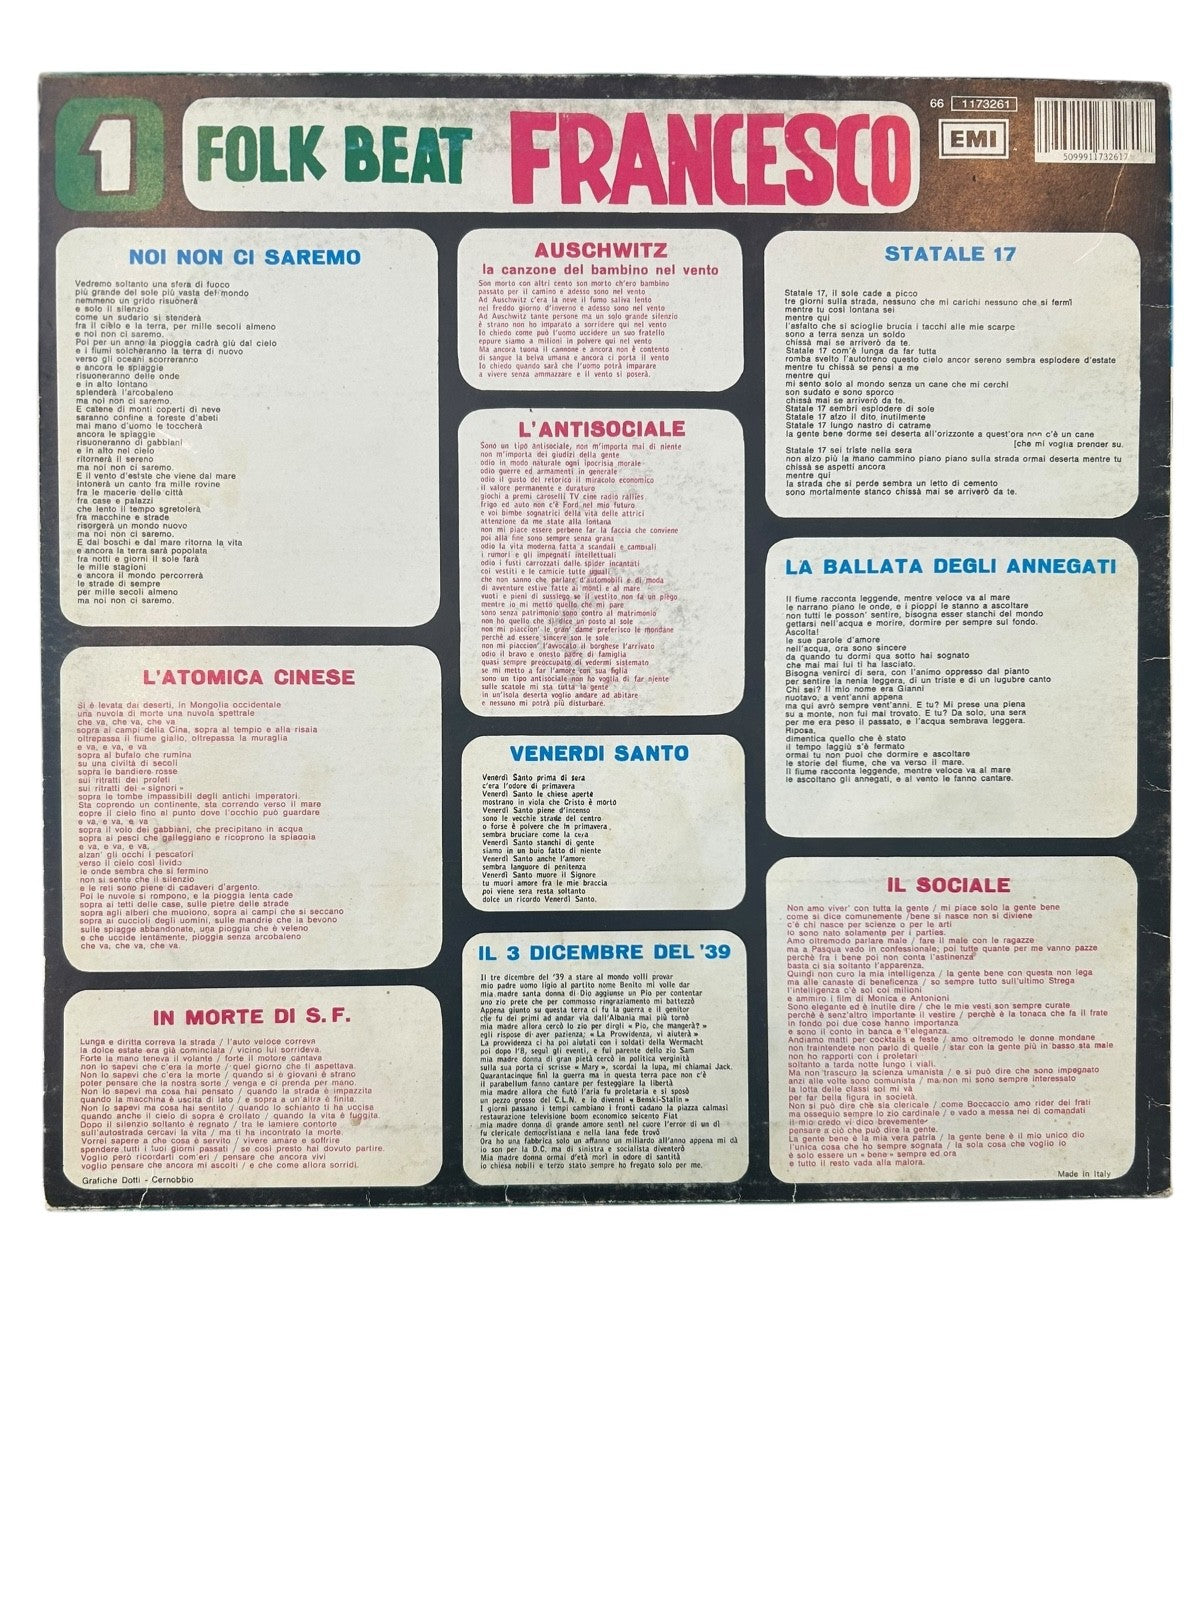 1
FOLK BEAT FRANCESCO
66 1173261
EMI
5099911732617
NOI NON CI SAREMO
Vedremo soltanto una sfera di fuoco
più grande del sole più vasta del mondo
nemmeno un grido risuonerà
e solo il silenzio
come un sudario si stenderà
fra il cielo e la terra, per mille secoli almeno
e noi non ci saremo.
Poi per un anno la pioggia cadrà giù dal cielo
e i fiumi solcheranno la terra di nuovo
verso gli oceani scorreranno
e ancora le spiagge
risuoneranno delle onde
e in alto lontano
splenderà l'arcobaleno
ma noi non ci saremo.
E catene di monti coperti di neve
saranno confine a foreste d'abeti
mai mano d'uomo le toccherà
ancora le spiaggie
risuoneranno di gabbiani
e in alto nel cielo
ritornerà il sereno
ma noi non ci saremo.
E il vento d'estate che viene dal mare
intonerà un canto fra mille rovine
fra le macerie delle città
fra case e palazzi
che lento il tempo sgretolerà
fra macchine e strade
risorgerà un mondo nuovo
ma noi non ci saremo.
E dai boschi e dal mare ritorna la vita
e ancora la terra sarà popolata
fra notti e giorni il sole farà
le mille stagioni
e ancora il mondo percorrerà
le strade di sempre
per mille secoli almeno
ma noi non ci saremo.
L'ATOMICA CINESE
Si è levata dai deserti, in Mongolia occidentale
una nuvola di morte una nuvola spettrale
che va, che va, che va
sopra ai campi della Cina, sopra al tempio e alla risaia
oltrepassa il fiume giallo, oltrepassa la muraglia
e va, e va, e va
sopra al bufalo che rumina
su una civiltà di secoli
sopra le bandiere rosse
sui ritratti dei profeti
sui ritratti dei « signori »
sopra le tombe impassibili degli antichi imperatori.
Sta coprendo un continente, sta correndo verso il mare
copre il cielo fino al punto dove l'occhio può guardare
e va, e va, e va
sopra il volo dei gabbiani, che precipitano in acqua
sopra ai pesci che galleggiano e ricoprono la spiaggia
e va, e va, e va,
alzan' gli occhi i pescatori
verso il cielo così livido
le onde sembra che si fermino
non si sente che il silenzio
e le reti sono piene di cadaveri d'argento.
Poi le nuvole si rompono, e la pioggia lenta cade
sopra ai tetti delle case, sulle pietre delle strade
sopra agli alberi che muoiono, sopra ai campi che si seccano
sopra ai cuccioli degli uomini, sulle mandrie che la bevono
sulle spiagge abbandonate, una pioggia che è veleno
e che uccide lentamente, pioggia senza arcobaleno
che va, che va, che va.
IN MORTE DI S. F.
Lunga e diritta correva la strada / l'auto veloce correva
la dolce estate era già cominciata / vicino lui sorrideva.
Forte la mano teneva il volante / forte il motore cantava
non lo sapevi che c'era la morte / quel giorno che ti aspettava.
Non lo sapevi che c'era la morte / quando si è giovani è strano
poter pensare che la nostra sorte / venga e ci prenda per mano.
Non lo sapevi ma cosa hai pensato / quando la strada è impazzita
quando la macchina è uscita di lato / e sopra a un'altra è finita.
Non lo sapevi ma cosa hai sentito / quando lo schianto ti ha uccisa
quando anche il cielo di sopra è crollato / quando la vita è fuggita.
Dopo il silenzio soltanto è regnato / tra le lamiere contorte
sull'autostrada cercavi la vita / ma ti ha incontrato la morte.
Vorrei sapere a che cosa è servito / vivere amare e soffrire
spendere tutti i tuoi giorni passati / se così presto hai dovuto partire.
Voglio però ricordarti com'eri / pensare che ancora vivi
voglio pensare che ancora mi ascolti / e che come allora sorridi.
Grafiche Dotti - Cernobbio
AUSCHWITZ
la canzone del bambino nel vento
Son morto con altri cento son morto ch'ero bambino
passato per il camino e adesso sono nel vento
Ad Auschwitz c'era la neve il fumo saliva lento
nel freddo giorno d'inverno e adesso sono nel vento
Ad Auschwitz tante persone ma un solo grande silenzio
è strano non ho imparato a sorridere qui nel vento
Io chiedo come può l'uomo uccidere un suo fratello
eppure siamo a milioni in polvere qui nel vento
Ma ancora tuona il cannone e ancora non è contento
di sangue la belva umana e ancora ci porta il vento
Io chiedo quando sarà che l'uomo potrà imparare
a vivere senza ammazzare e il vento si poserà.
L'ANTISOCIALE
Sono un tipo antisociale, non m'importa mai di niente
non m'importa dei giudizi della gente
odio in modo naturale ogni ipocrisia morale
odio guerre ed armamenti in generale
odio il gusto del retorico il miracolo economico
il valore permanente e duraturo
giochi a premi caroselli TV cine radio rallies
frigo ed auto non c'è Ford nel mio futuro
e voi bimbe sognatrici della vita delle attrici
attenzione da me state alla lontana
non mi piace essere perbene far la faccia che conviene
poi alla fine sono sempre senza grana
odio la vita moderna fatta a scandali e cambiali
i rumori e gli impegnati intellettuali
odio i fusti carrozzati dalle spider incantati
coi vestiti e le camicie tutte uguali
che non sanno che parlare d'automobili e di moda
di avventure estive fatte ai monti e al mare
vuoti e pieni di sussiego se il vestito non fa un piego
mentre io mi metto quello che mi pare
sono senza patrimonio sono contro al matrimonio
non ho quello che si dice un posto al sole
non mi piaccion' le gran' dame preferisco le mondane
perchè ad essere sincere son le sole
non mi piaccion' l'avvocato il borghese l'arrivato
odio il bravo e onesto padre di famiglia
quasi sempre preoccupato di vedermi sistemato
se mi metto a far l'amore con sua figlia
sono un tipo antisociale non ho voglia di far niente
sulle scatole mi sta tutta la gente
in un'isola deserta voglio andare ad abitare
e nessuno mi potrà più disturbare.
VENERDI SANTO
Venerdì Santo prima di sera
c'era l'odore di primavera
Venerdì Santo le chiese aperte
mostrano in viola che Cristo è morto
Venerdì Santo piene d'incenso
sono le vecchie strade del centro
o forse è polvere che in primavera
sembra bruciare come la cera
Venerdì Santo stanchi di gente
siamo in un buio fatto di niente
Venerdì Santo anche l'amore
sembra languore di penitenza
Venerdì Santo muore il Signore
tu muori amore fra le mie braccia
poi viene sera resta soltanto
dolce un ricordo Venerdì Santo.
IL 3 DICEMBRE DEL '39
Il tre dicembre del '39 a stare al mondo volli provar
mio padre uomo ligio al partito nome Benito mi volle dar
mia madre santa donna di Dio aggiunse un Pio per contentar
uno zio prete che per commoso ringraziamento mi battezzò
Appena giunto su questa terra ci fu la guerra e il genitor
che fu dei primi ad andar via dall'Albania mai più tornò
mia madre allora cercò lo zio per dirgli « Pio, che mangerà? »
egli rispose di aver pazienza; « La Provvidenza, vi aiuterà »
La provvidenza ci ha poi aiutati con i soldati della Wermacht
poi dopo l'8, seguì gli eventi, e fui parente dello zio Sam
mia madre donna di gran pietà cercò in politica verginità
sulla sua porta ci scrisse « Mary », scordai la lupa, mi chiamai Jack.
Quarantacinque finì la guerra ma in questa terra pace non c'è
il parabellum fanno cantare per festeggiare la libertà
mia madre allora che fiutò l'aria fu proletaria e si sposò
un pezzo grosso del C.L.N. e io divenni « Benski-Stalin »
I giorni passano i tempi cambiano i fronti cadano la piazza calmasi
restaurazione televisione boom economico seicento Fiat
mia madre donna di grande amore sentì nel cuore l'error di un dì
fu clericale democristiana e nella lana fede trovò
Ora ho una fabbrica solo un affanno un miliardo all'anno appena mi dà
io son per la D.C. ma di sinistra e socialista diventerò
Mia madre donna ormai d'età morì in odore di santità
io chiesa nobili e terzo stato sempre ho fregato solo per me.
STATALE 17
Statale 17, il sole cade a picco
tre giorni sulla strada, nessuno che mi carichi nessuno che si fermi
mentre tu così lontana sei
mentre qui
l'asfalto che si scioglie brucia i tacchi alle mie scarpe
sono a terra senza un soldo
chissà mai se arriverò da te.
Statale 17 com'è lunga da far tutta
romba svelto l'autotreno questo cielo ancor sereno sembra esplodere d'estate
mentre tu chissà se pensi a me
mentre qui
mi sento solo al mondo senza un cane che mi cerchi
son sudato e sono sporco
chissà mai se arriverò da te.
Statale 17 sembri esplodere di sole
Statale 17 alzo il dito inutilmente
Statale 17 lungo nastro di catrame
la gente bene dorme sei deserta all'orizzonte a quest'ora non c'è un cane
[che mi voglia prender su.
Statale 17 sei triste nella sera
non alzo più la mano cammino piano piano sulla strada ormai deserta mentre tu
chissà se aspetti ancora
mentre qui
la strada che si perde sembra un letto di cemento
sono mortalmente stanco chissà mai se arriverò da te.
LA BALLATA DEGLI ANNEGATI
Il fiume racconta leggende, mentre veloce va al mare
le narrano piano le onde, e i pioppi le stanno a ascoltare
non tutti le posson' sentire, bisogna esser stanchi del mondo
gettarsi nell'acqua e morire, dormire per sempre sul fondo.
Ascolta!
le sue parole d'amore
nell'acqua, ora sono sincere
da quando tu dormi qua sotto hai sognato
che mai mai lui ti ha lasciato.
Bisogna venirci di sera, con l'animo oppresso dal pianto
per sentire la nenia leggera, di un triste e di un lugubre canto
Chi sei? Il mio nome era Gianni
nuotavo, a vent'anni appena
ma qui avrò sempre vent'anni. E tu? Mi prese una piena
su a monte, non fui mai trovato. E tu? Da solo, una sera
per me era peso il passato, e l'acqua sembrava leggera.
Riposa,
dimentica quello che è stato
il tempo laggiù s'è fermato
ormai tu non puoi che dormire e ascoltare
le storie del fiume, che va verso il mare.
Il fiume racconta leggende, mentre veloce va al mare
le ascoltano gli annegati, e al vento le fanno cantare.
IL SOCIALE
Non amo viver' con tutta la gente / mi piace solo la gente bene
come si dice comunemente /bene si nasce non si diviene
c'è chi nasce per scienze o per le arti
io sono nato solamente per i parties.
Amo oltremodo parlare male / fare il male con le ragazze
ma a Pasqua vado in confessionale; poi tutte quante per me vanno pazze
perchè fra i bene poi non conta l'astinenza
basta ci sia soltanto l'apparenza.
Quindi non curo la mia intelligenza / la gente bene con questa non lega
ma alle canaste di beneficenza / so sempre tutto sull'ultimo Strega
l'intelligenza c'è sol coi milioni
e ammiro i film di Monica e Antonioni
Sono elegante ed è inutile dire / che le mie vesti son sempre curate
perchè è senz'altro importante il vestire / perchè è la tonaca che fa il frate
in fondo poi due cose hanno importanza
e sono il conto in banca e l'eleganza.
Andiamo matti per cocktails e feste / amo oltremodo le donne mondane
non fraintendete non parlo di quelle / star con la gente più in basso sta male
non ho rapporti con i proletari
soltanto a tarda notte lungo i viali.
Ma non trascuro la scienza umanista / e si può dire che sono impegnato
anzi alle volte sono comunista / ma non mi sono sempre interessato
la lotta delle classi sol mi va
per far bella figura in società.
Non si può dire che sia clericale / come Boccaccio amo rider dei frati
ma ossequio sempre lo zio cardinale / e vado a messa nei dì comandati
il mio credo vi dico brevemente
pensare a ciò che può dire la gente.
La gente bene è la mia vera patria / la gente bene è il mio unico dio
l'unica cosa che ho sempre sognata / la sola cosa che voglio io
è solo essere un « bene » sempre ed ora
e tutto il resto vada alla malora.
Made in Italy